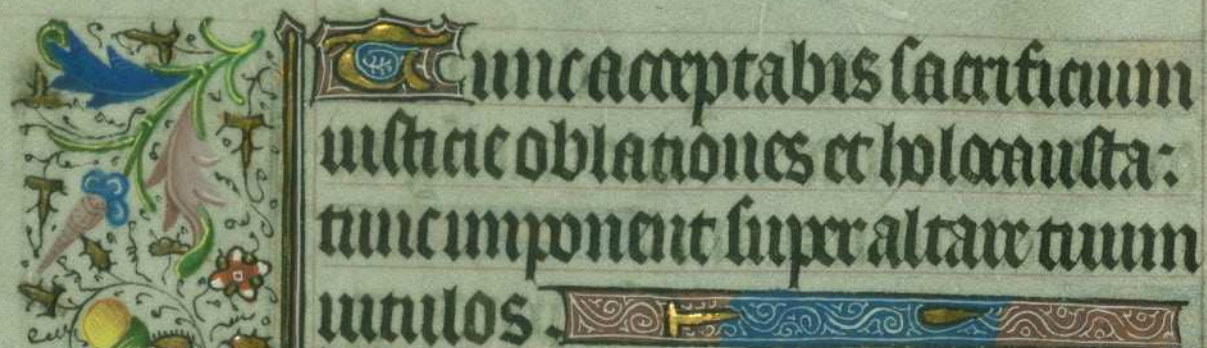 Tunc acceptabis sacrificium
iusticie oblationes et holocausta:
tunc imponent super altare tuum
uitulos.